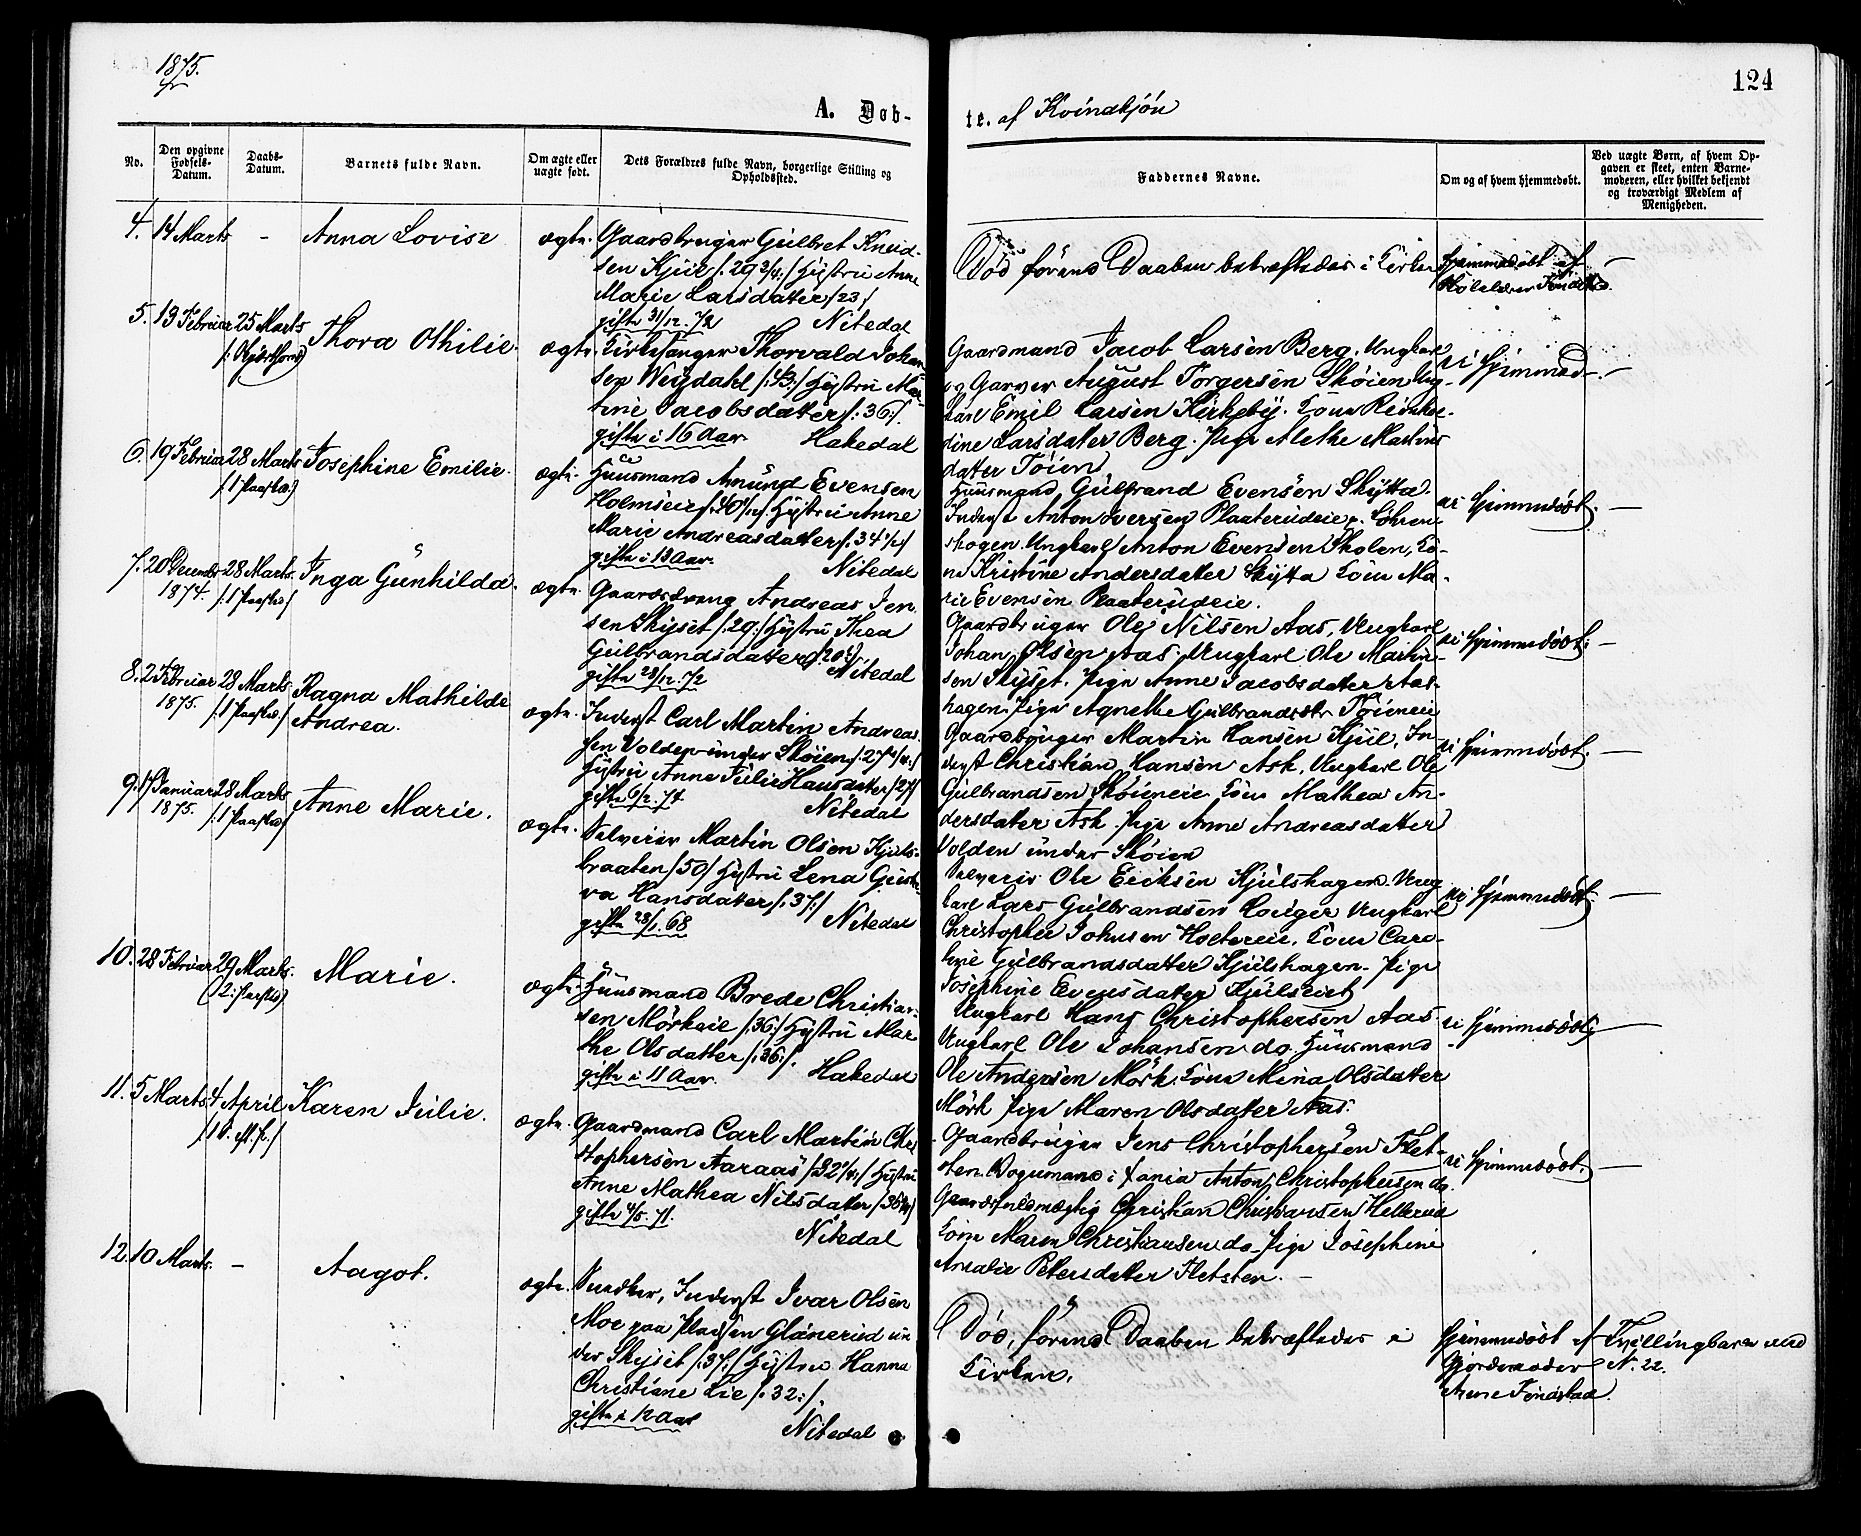 1875.
124
A. Døb-
te. af Kvindkjön
No.
Den opgivne Fødsels-Datum.
Daabs-Datum.
Barnets fulde Navn.
Om ægte eller uægte født.
Dets Forældres fulde Navn, borgerlige Stilling og Opholdssted.
Faddernes Navne.
Om og af hvem hjemmedøbt.
Ved uægte Børn, af hvem Op-
gaven er skeet, enten Barne-
moderen, eller hvilket bekjendt
og troværdigt Medlem af
Menigheden.
4. 14 Marts - Anna Lovise ægte.
Gaardbruger Gulbret Knud-
sen Kjul /: 29 3/4 :/ Hustru Anne
Marie Larsdatter /23/
gifte 31/12. 72 Nitedal
Död förend Daaben bekræftedes i Kirken
Hjemmedöbt af
Skolelærer —
5. 13 Februar 25 Marts
Thora Othilie. ægte.
Kirkesanger Thorvald Johan-
sen Weydahl /: 43 :/ Hustru Mar-
tine Jacobsdatter /: 36 :/
gifte i 16 Aar. Hakedal
Gaardmand Jacob Larsen Berg. Ungkarl
og Garver August Torgersen Sköien Ung-
karl Emil Larsen Kirkeby. Kone
dine Larsdater Berg. Pige Alethe Martins
dater Töien
ei Hjemmed. —
6. 19 Februar 28 Marts
/: 1 Paaskd. :/
Josephine Emilie. ægte.
Huusmand Amund Evensen
Holmseie Hustru Anne
Marie Andreasdatter /: 34 1/2 :/
gifte i 13 Aar. Nitedal
Huusmand Gulbrand Evensen Skytta.
Inderst Anton Iversen Plaaterudeie p. Söhren-
skogen Ungkarl Anton Evensen Skolen, Ko-
ne Kristine Andersdater Skytta Kone Ma-
rie Evensen Plaaterudeie.
ei Hjemmedöbt. —
7. 20 December 1874. 28 Marts
/: 1 Paaskd /
Inga Gunhilda. ægte.
Gaardsdreng Andreas Jen-
sen Skyset /: 29 :/ Hustru Thea
Gulbrandsdatter /: 20 :/
gifte 28/12. 72 Nitedal
Gaardbruger Ole Nilsen Aas, Ungkarl
Johan Olsen Aas. Ungkarl Ole Martin-
sen Skyset. Pige Anne Jacobsdater Aas-
hagen Pige Agnethe Gulbrandsdtr Töieneie
ei Hjemmedöbt. —
8. 2 Februar 1875. 28 Marts
/: 1 Paaskd. /
Ragna Mathilde
Andrea. ægte.
Inderst Carl Martin Andreas-
sen Volden under Sköien
Hustru Anne Julie Hansdater /27/
gifte 6/2. 74 Nitedal
Gaardbruger Martin Hansen Kjul, In-
derst Christian Hansen Ask, Ungkarl Ole
Gulbrandsen Sköieneie Kone Mathea An-
dersdater Ask. Pige Anne Andreasdatter
Volden under Sköien
ei Hjemmedöbt. —
9. 17 Januar 1875. 28 Marts
/: 1 Paaskd /
Anne Marie. ægte.
Selveier Martin Olsen Kjuls-
braaten /50/ Hustru Lena Gusta-
va Hansdatter /: 37 :/
gifte 23/1. 68 Nitedal
Selveier Ole Eriksen Kjulshagen. Ung
karl Lars Gulbrandsen Ungkarl
Christopher Johnsen Holtereie. Kone Caro-
line Gulbrandsdatter Kjulshagen. Pige
Josephine Evensdater Kjulseiet
ei Hjemmedöbt. —
10. 28 Februar 29 Marts.
(2: Paaskd)
Marie. ægte.
Huusmand Brede Christian-
sen Mörkeie /: 36 :/ Hustru Mar-
the Olsdatter /: 36 :/.
gifte i 11 Aar. Hakedal
Ungkarl Hans Christophersen Aas
Ungkarl Ole Johansen do. Huusmand
Ole Andersen Mörk. Kone Mina Olsdater
Mörk Pige Maren Olsdater Aas.
ei Hjemmedöbt —
11. 5 Marts 4 April
Karen Julie. ægte.
Gaardmand Carl Martin Chri-
stophersen Aaraas Hustru
Anne Mathea Nilsdater
gifte 4/5. 71. Nitedal
Gaardbruger Jens Christophersen Flet-
sten. Vognmand i Xania Anton Christophersen do.
Gaardsfuldmægtig Christian Christiansen Hellerud
Kone Maren Christiansen do. Pige Josephine
Amalie Petersdater Fletsten. —
ei Hjemmedöbt. —
12. 10 Marts. - Aagot. ægte.
Snedker, Inderst Ivar Olsen
Moe paa Pladsen Glanerud un-
der Skyset /: 37 :/ Hustru Hanna
Christiane Lie /: 32 :/.
gifte i 12 Aar Nitedal
Död, förend Daaben bekræftedes i
Kirken.
Hjemmedöbt af
Gjordemoder
Anne Tendstad.
Tvillingbarn med
N. 22.